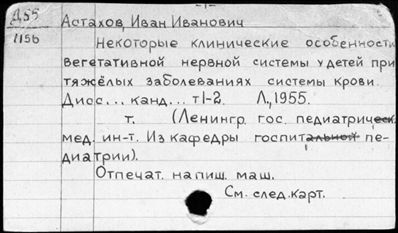 Д55
1156
Астахов, Иван Иванович
Некоторые клинические особенности
вегетативной нервной системы у детей при
тяжёлых заболеваниях системы крови.
Дисс... канд... т 1-2. Л., 1955.
т. (Ленингр. гос. педиатрическ.
мед. ин-т. Из кафедры госпитальной пе-
диатрии).
Отпечат. на пиш. маш.
См. след. карт.